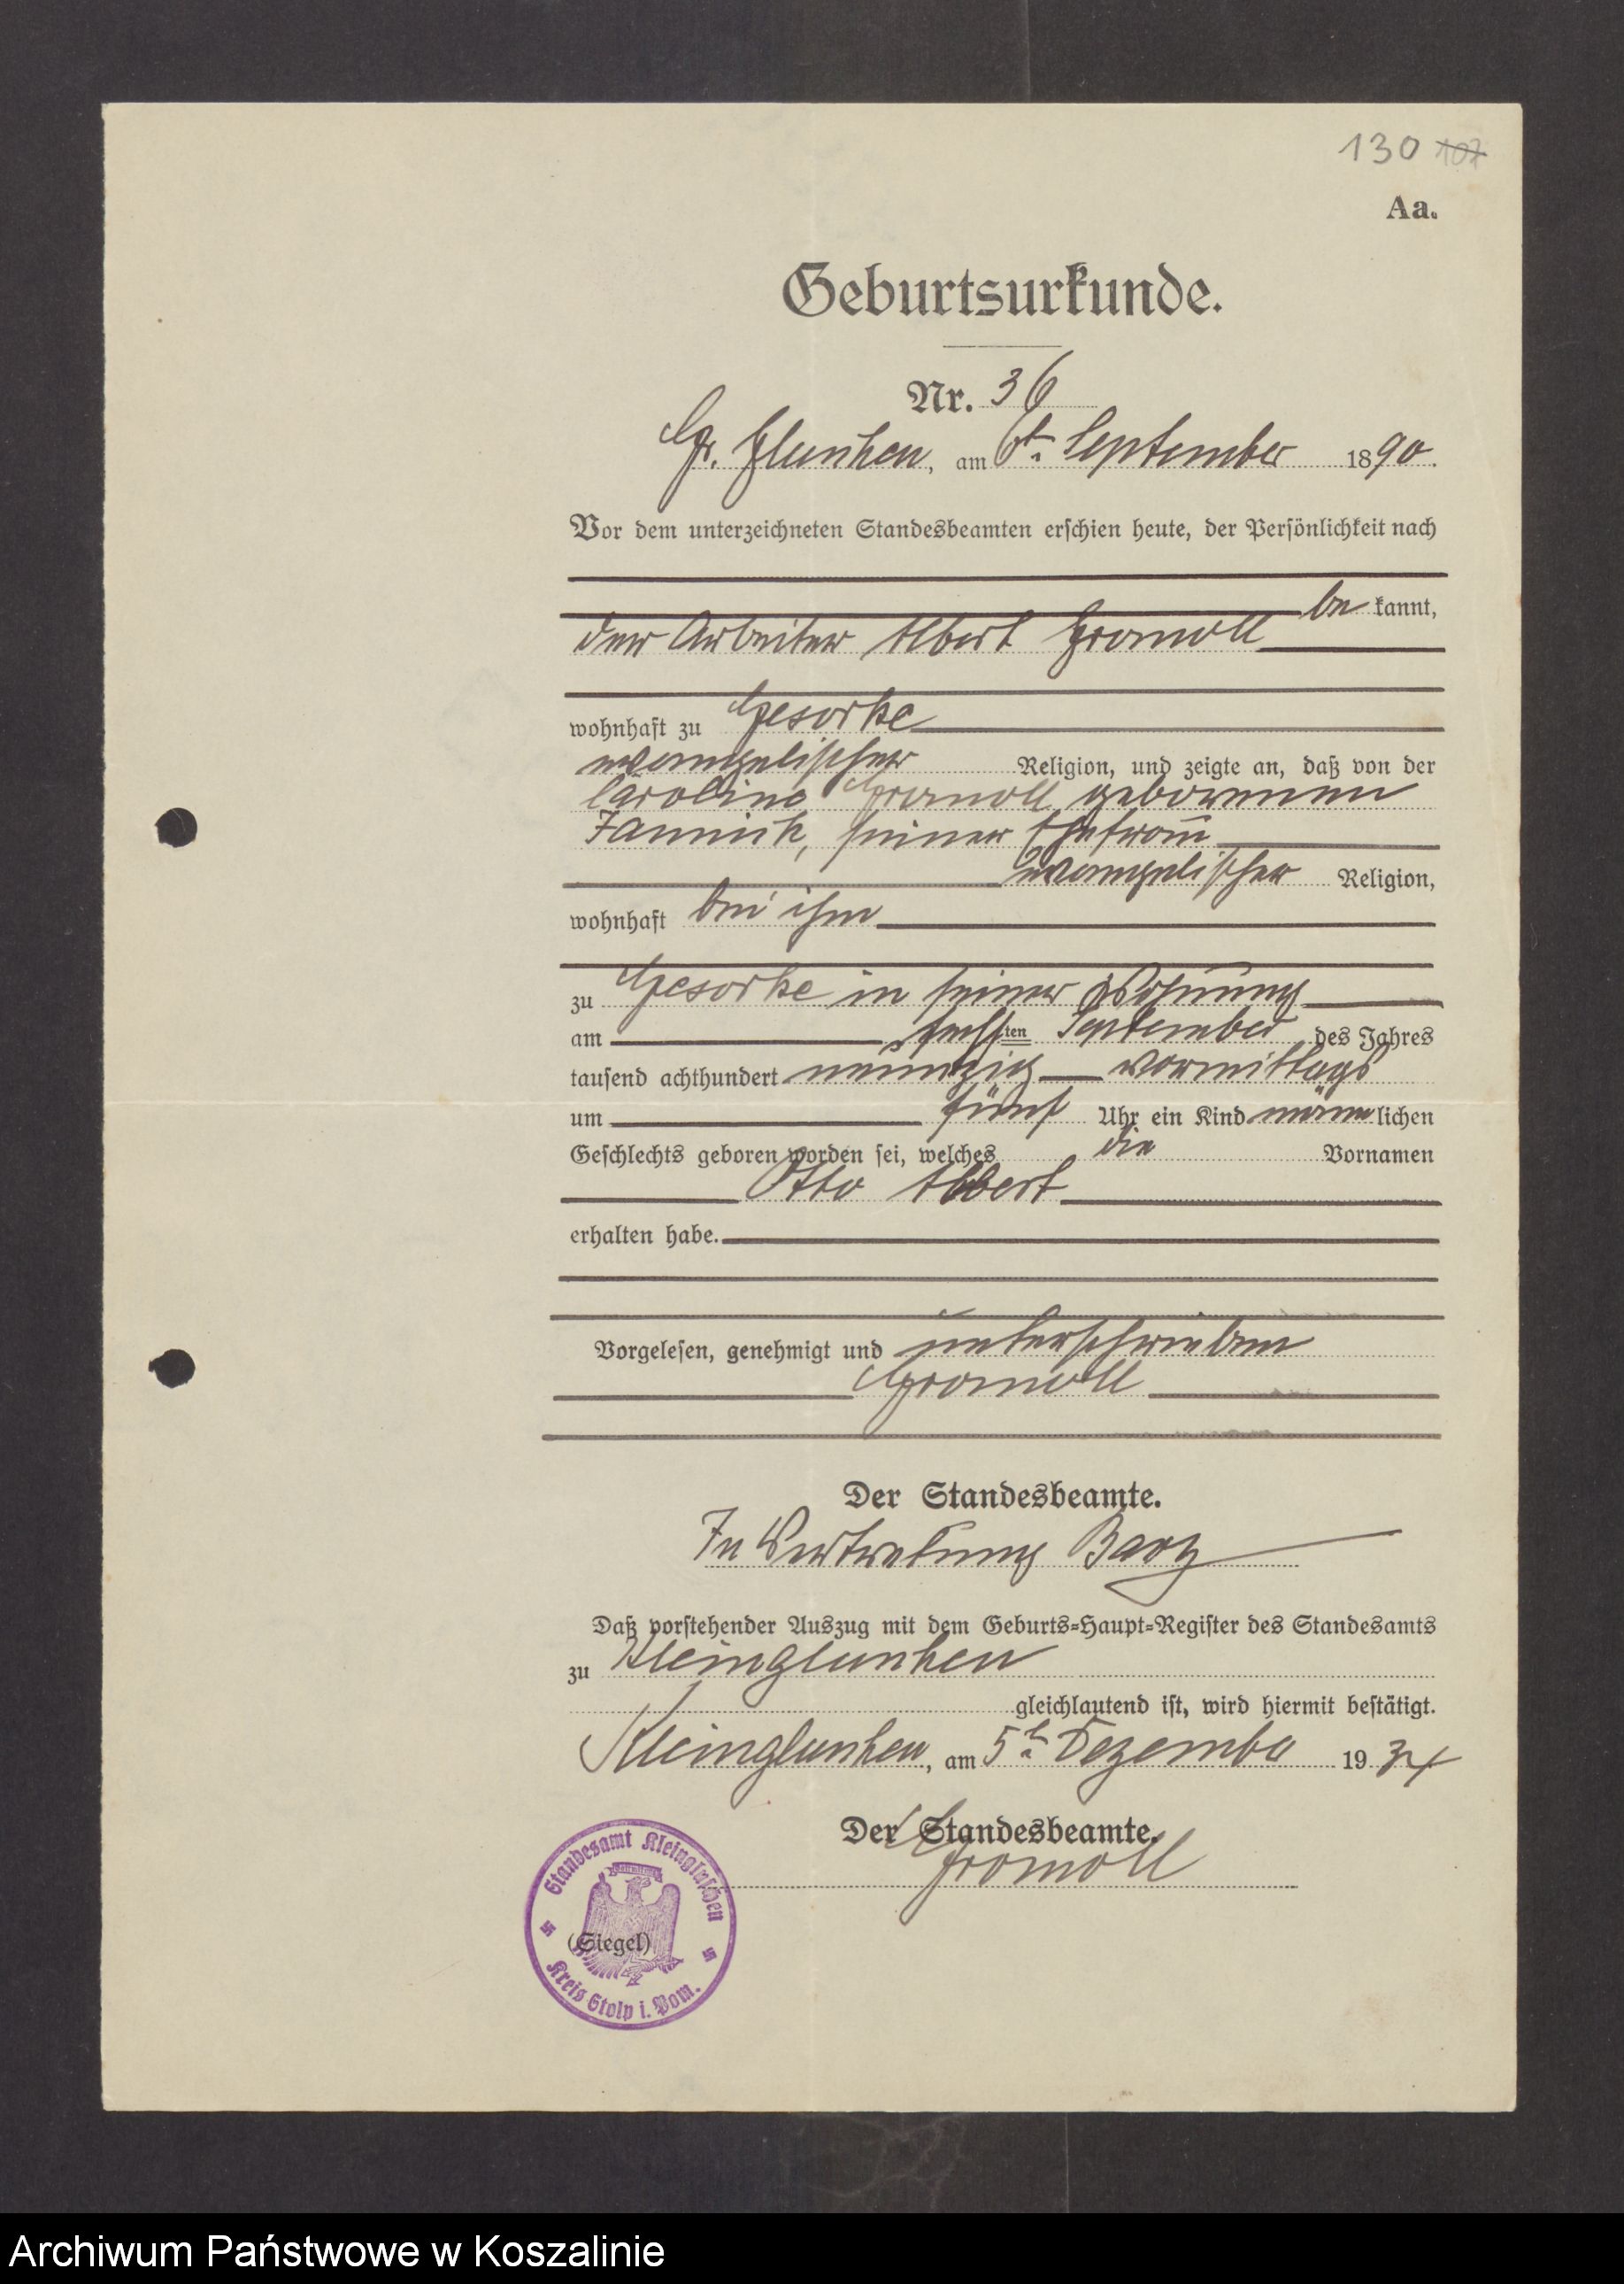 130 107
Aa.
Geburtsurkunde.
Nr. 36
Gr. Glunken, am 6t. September 1890.
Vor dem unterzeichneten Standesbeamten erschien heute, der Persönlichkeit nach
be kannt,
der Arbeiter Albert Gromoll
wohnhaft zu Gesorke
evangelischer Religion, und zeigte an, daß von der
Caroline Gromoll geborenen
Jannick, seiner Ehefrau
evangelischer Religion,
wohnhaft bei ihm
zu Gesorke in seiner Wohnung
am ten September des Jahres
tausend achthundert neunzig vormittags
um fünf Uhr ein Kind männlichen
Geschlechts geboren worden sei, welches die Vornamen
Otto Albert
erhalten habe.
Vorgelesen, genehmigt und unterschrieben
Gromoll
Der Standesbeamte.
In Vertretung Barz
Daß vorstehender Auszug mit dem Geburts-Haupt-Register des Standesamts
zu Kleinglunken
gleichlautend ist, wird hiermit bestätigt.
Kleinglunken, am 5t. Dezember 1934
Der Standesbeamte.
Gromoll
Standesamt Kleingluschen
(Siegel)
Kreis Stolp i. Pom.
Archiwum Państwowe w Koszalinie